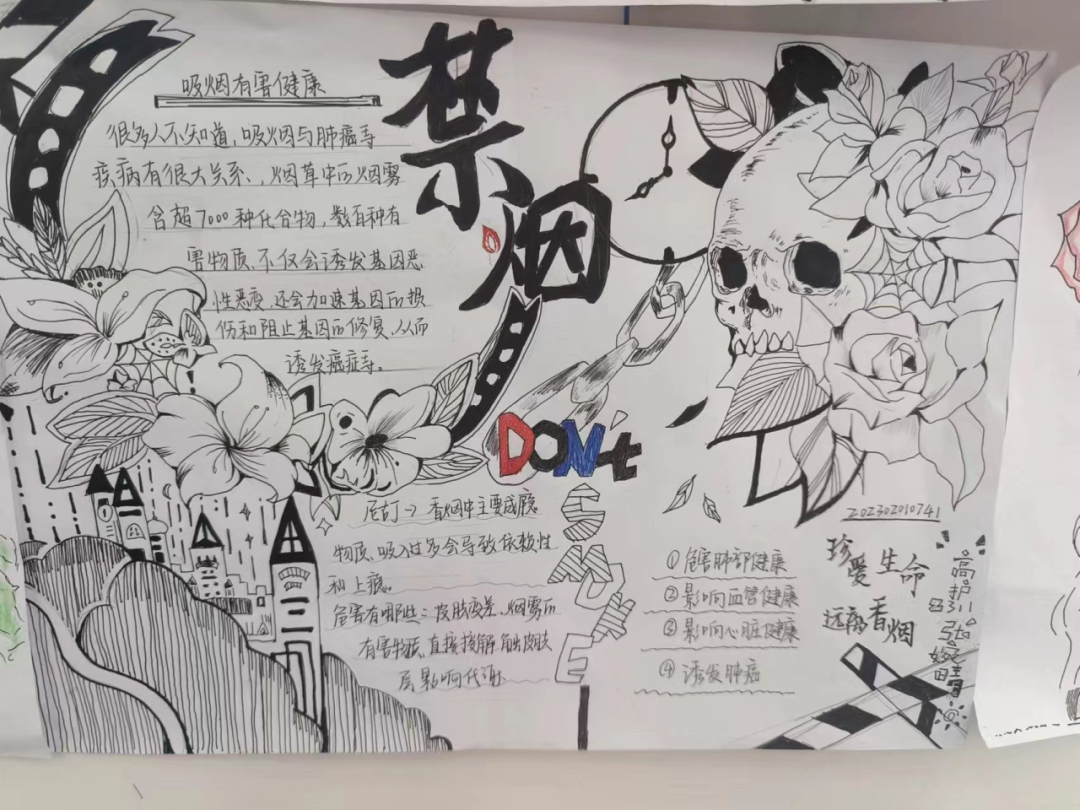 吸烟有害健康
很多人不知道，吸烟与肺癌等
疾病有很大关系，烟草中的烟雾
含超7000种化合物，数百种有
害物质，不仅会诱发基因恶
性恶变，还会加速基因的损
伤和阻止基因的修复，从而
诱发癌症等。
禁烟
DON't
SMOKE
尼古丁→香烟中主要成隐
物质、吸入过多会导致依赖性
和上瘾。
危害有哪些：皮肤变差、烟雾的
有害物质、直接接解、触皮肤
层影响代谢
①危害肺部健康
②影响血管健康
③影响心脏健康
④诱发肺癌
202302010741
珍爱生命
远离香烟
高护